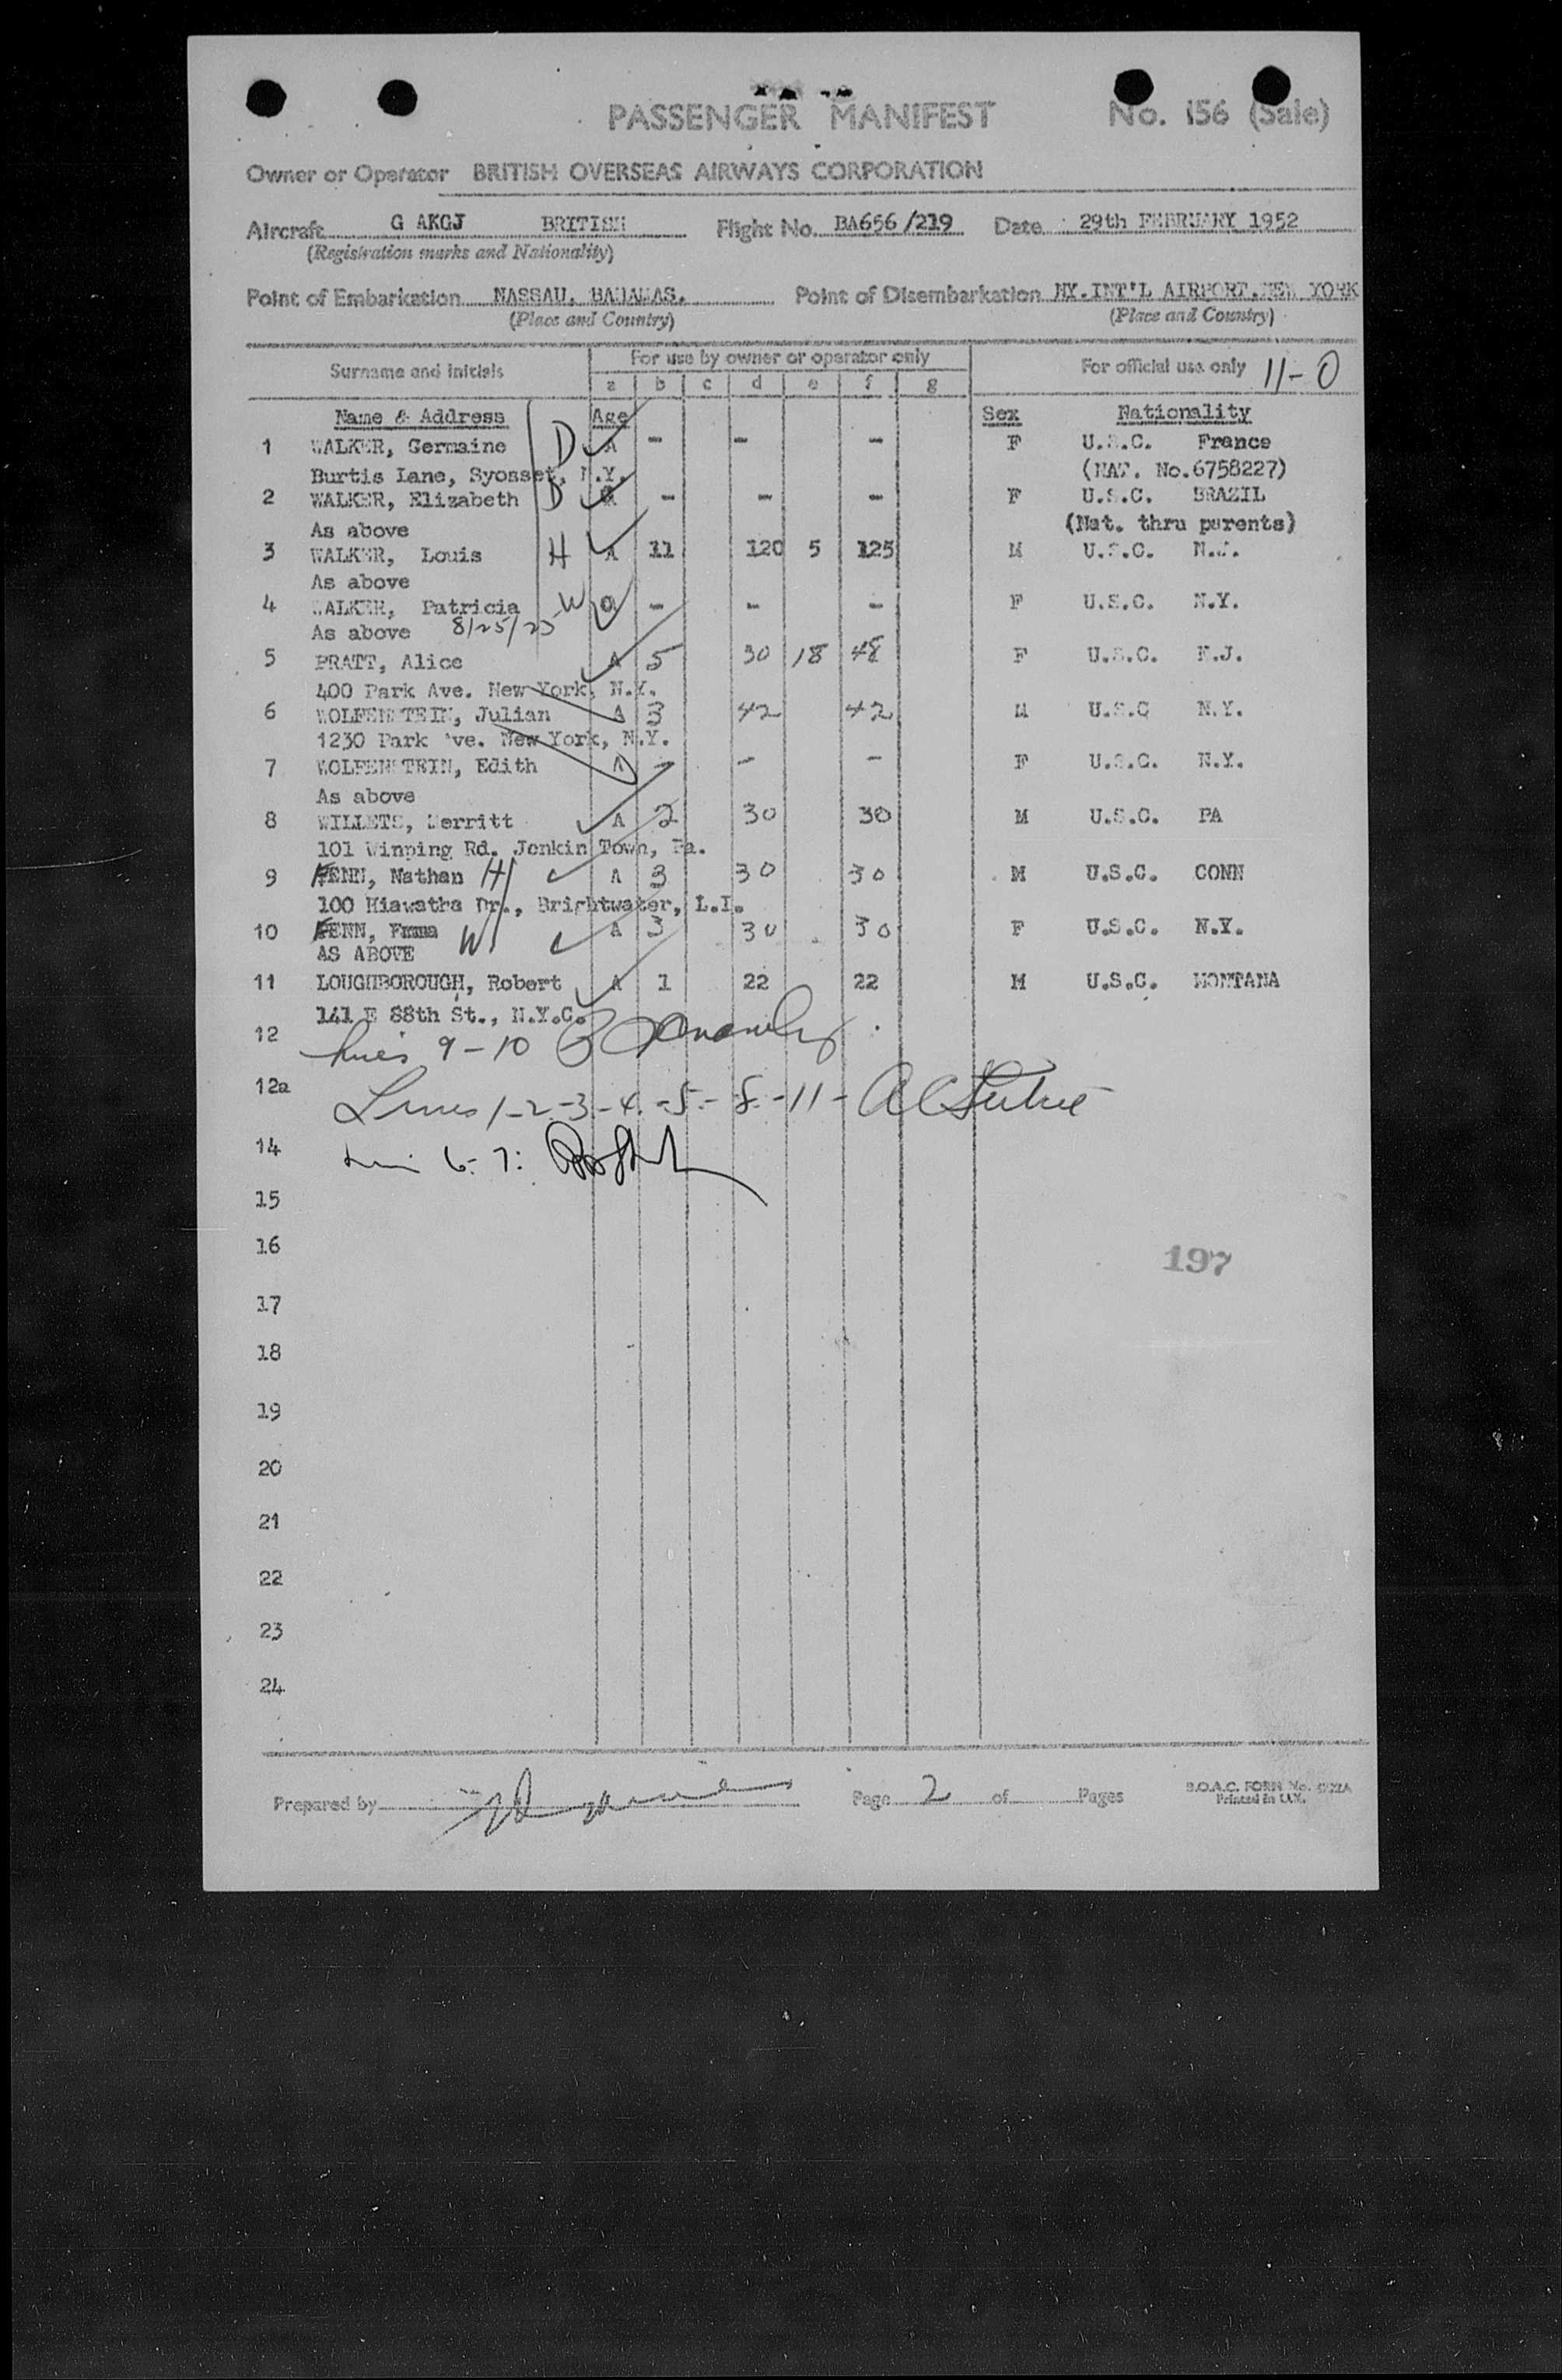 PASSENGER MANIFEST No. 156 (Sale)
Owner or Operator BRITISH OVERSEAS AIRWAYS CORPORATION
Aircraft G AKGJ BRITISH Flight No. BA656/219 Date 29th FEBRUARY 1952
(Registration marks and Nationality)
Point of Embarkation NASSAU, BAHAMAS. Point of Disembarkation NY.INT'L AIRPORT.NEW YORK
(Place and Country) (Place and Country)
Surname and initials For use by owner or operator only For official use only 11-0
a b c d e f g
Name & Address Age Sex Nationality
1 WALKER, Germaine D A - - - F U.S.C. France
Burtis Lane, Syosset, N.Y. (NAT. No.6758227)
2 WALKER, Elizabeth D - - - F U.S.C. BRAZIL
As above (Nat. thru parents)
3 WALKER, Louis H A 11 120 5 125 M U.S.C. N.J.
As above
4 WALKER, Patricia W - - - F U.S.C. N.Y.
As above 8/25/23
5 PRATT, Alice A 5 30 18 48 F U.S.C. N.J.
400 Park Ave. New York, N.Y.
6 WOLFENSTEIN, Julian A 3 42 42 M U.S.C N.Y.
1230 Park Ave. New York, N.Y.
7 WOLFENSTEIN, Edith A - - - F U.S.C. N.Y.
As above
8 WILLETS, Merritt A 2 30 30 M U.S.C. PA
101 Winping Rd. Jenkin Town, Pa.
9 FENN, Nathan H A 3 30 30 M U.S.C. CONN
100 Hiawatha Dr., Brightwater, L.I.
10 FENN, Emma W A 3 30 30 F U.S.C. N.Y.
AS ABOVE
11 LOUGHBOROUGH, Robert A 1 22 22 M U.S.C. MONTANA
141 E 88th St., N.Y.C.
12 Lines 9-10
12a Lines 1-2-3-4-5-8-11-
14 6-7:
15
16
197
17
18
19
20
21
22
23
24
Prepared by Page 2 of Pages B.O.A.C. FORM No.
Printed in U.K.